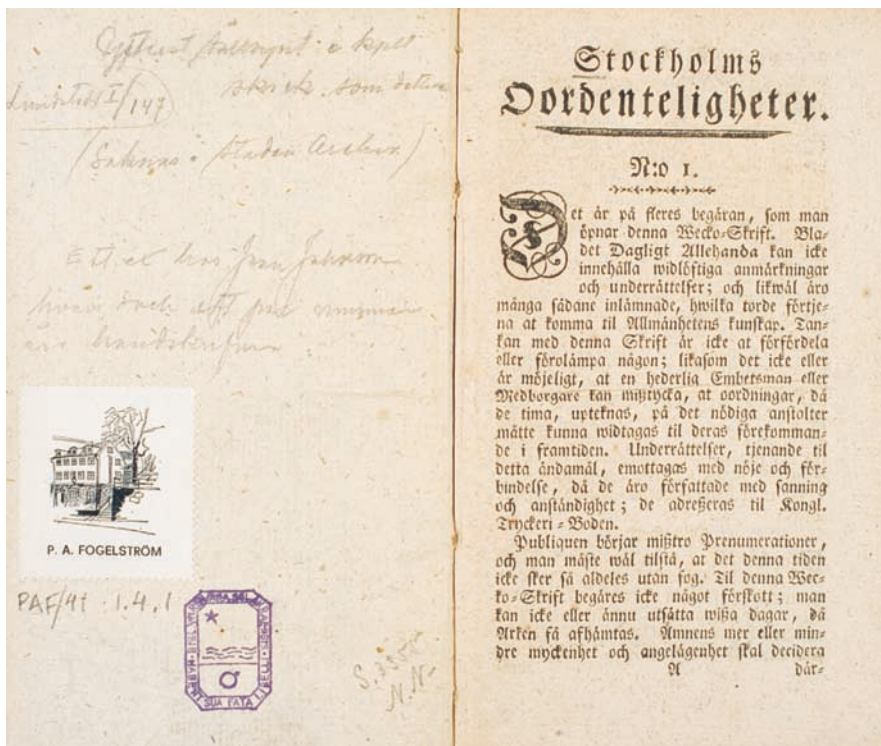 Ytterst sällsynt i kplt
skick. som detta
Lundstedt I/147
(Saknas i Stadens Archiv)
Ett ex hos Jean Jahnsson
hvari dock ett par nummer
är handskrifna
P. A. FOGELSTRÖM
PAF/4t 1.4.1
HABENT SUA FATA LIBELLI
N.N-
Stockholms
Oordenteligheter.
N:o 1.
Det är på fleres begäran, som man
öpnar denna Wecko-Skrift. Bla-
det Dagligt Allehanda kan icke
innehålla widlöftiga anmärkningar
och underrättelser; och likwäl äro
många sådane inlämnade, hwilka torde förtje-
na at komma til Allmänhetens kunskap. Tan-
kan med denna Skrift är icke at förfördela
eller förolämpa någon; likasom det icke eller
är möjeligt, at en hederlig Embetsman eller
Medborgare kan mißtycka, at oordningar, då
de tima, upteknas, på det nödiga anstalter
måtte kunna widtagas til deras förekomman-
de i framtiden. Underrättelser, tjenande til
detta ändamål, emottagas med nöje och för-
bindelse, då de äro författade med sanning
och anständighet; de adreßeras til Kongl.
Tryckeri-Boden.
Publiquen börjar mißtro Prenumerationer,
och man måste wäl tilstå, at det denna tiden
icke sker så aldeles utan fog. Til denna Wec-
ko-Skrift begäres icke något förskott; man
kan icke eller ännu utsätta wißa dagar, då
Arken få afhämtas. Ämnens mer eller min-
dre myckenhet och angelägenhet skal decidera
A där-